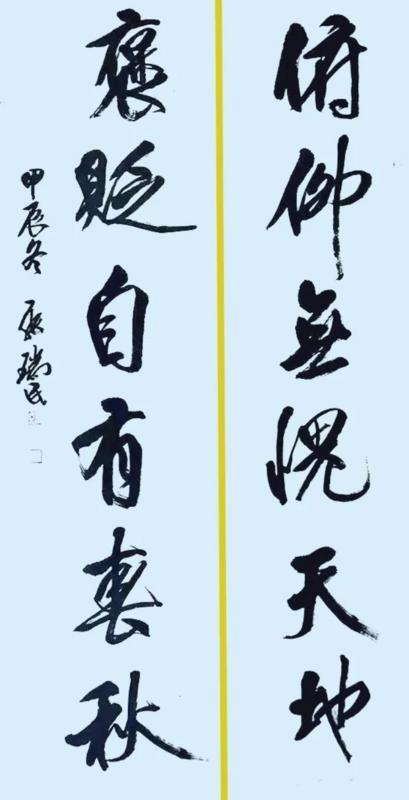 俯仰無愧天地
褒貶自有春秋
甲辰冬 瑞民